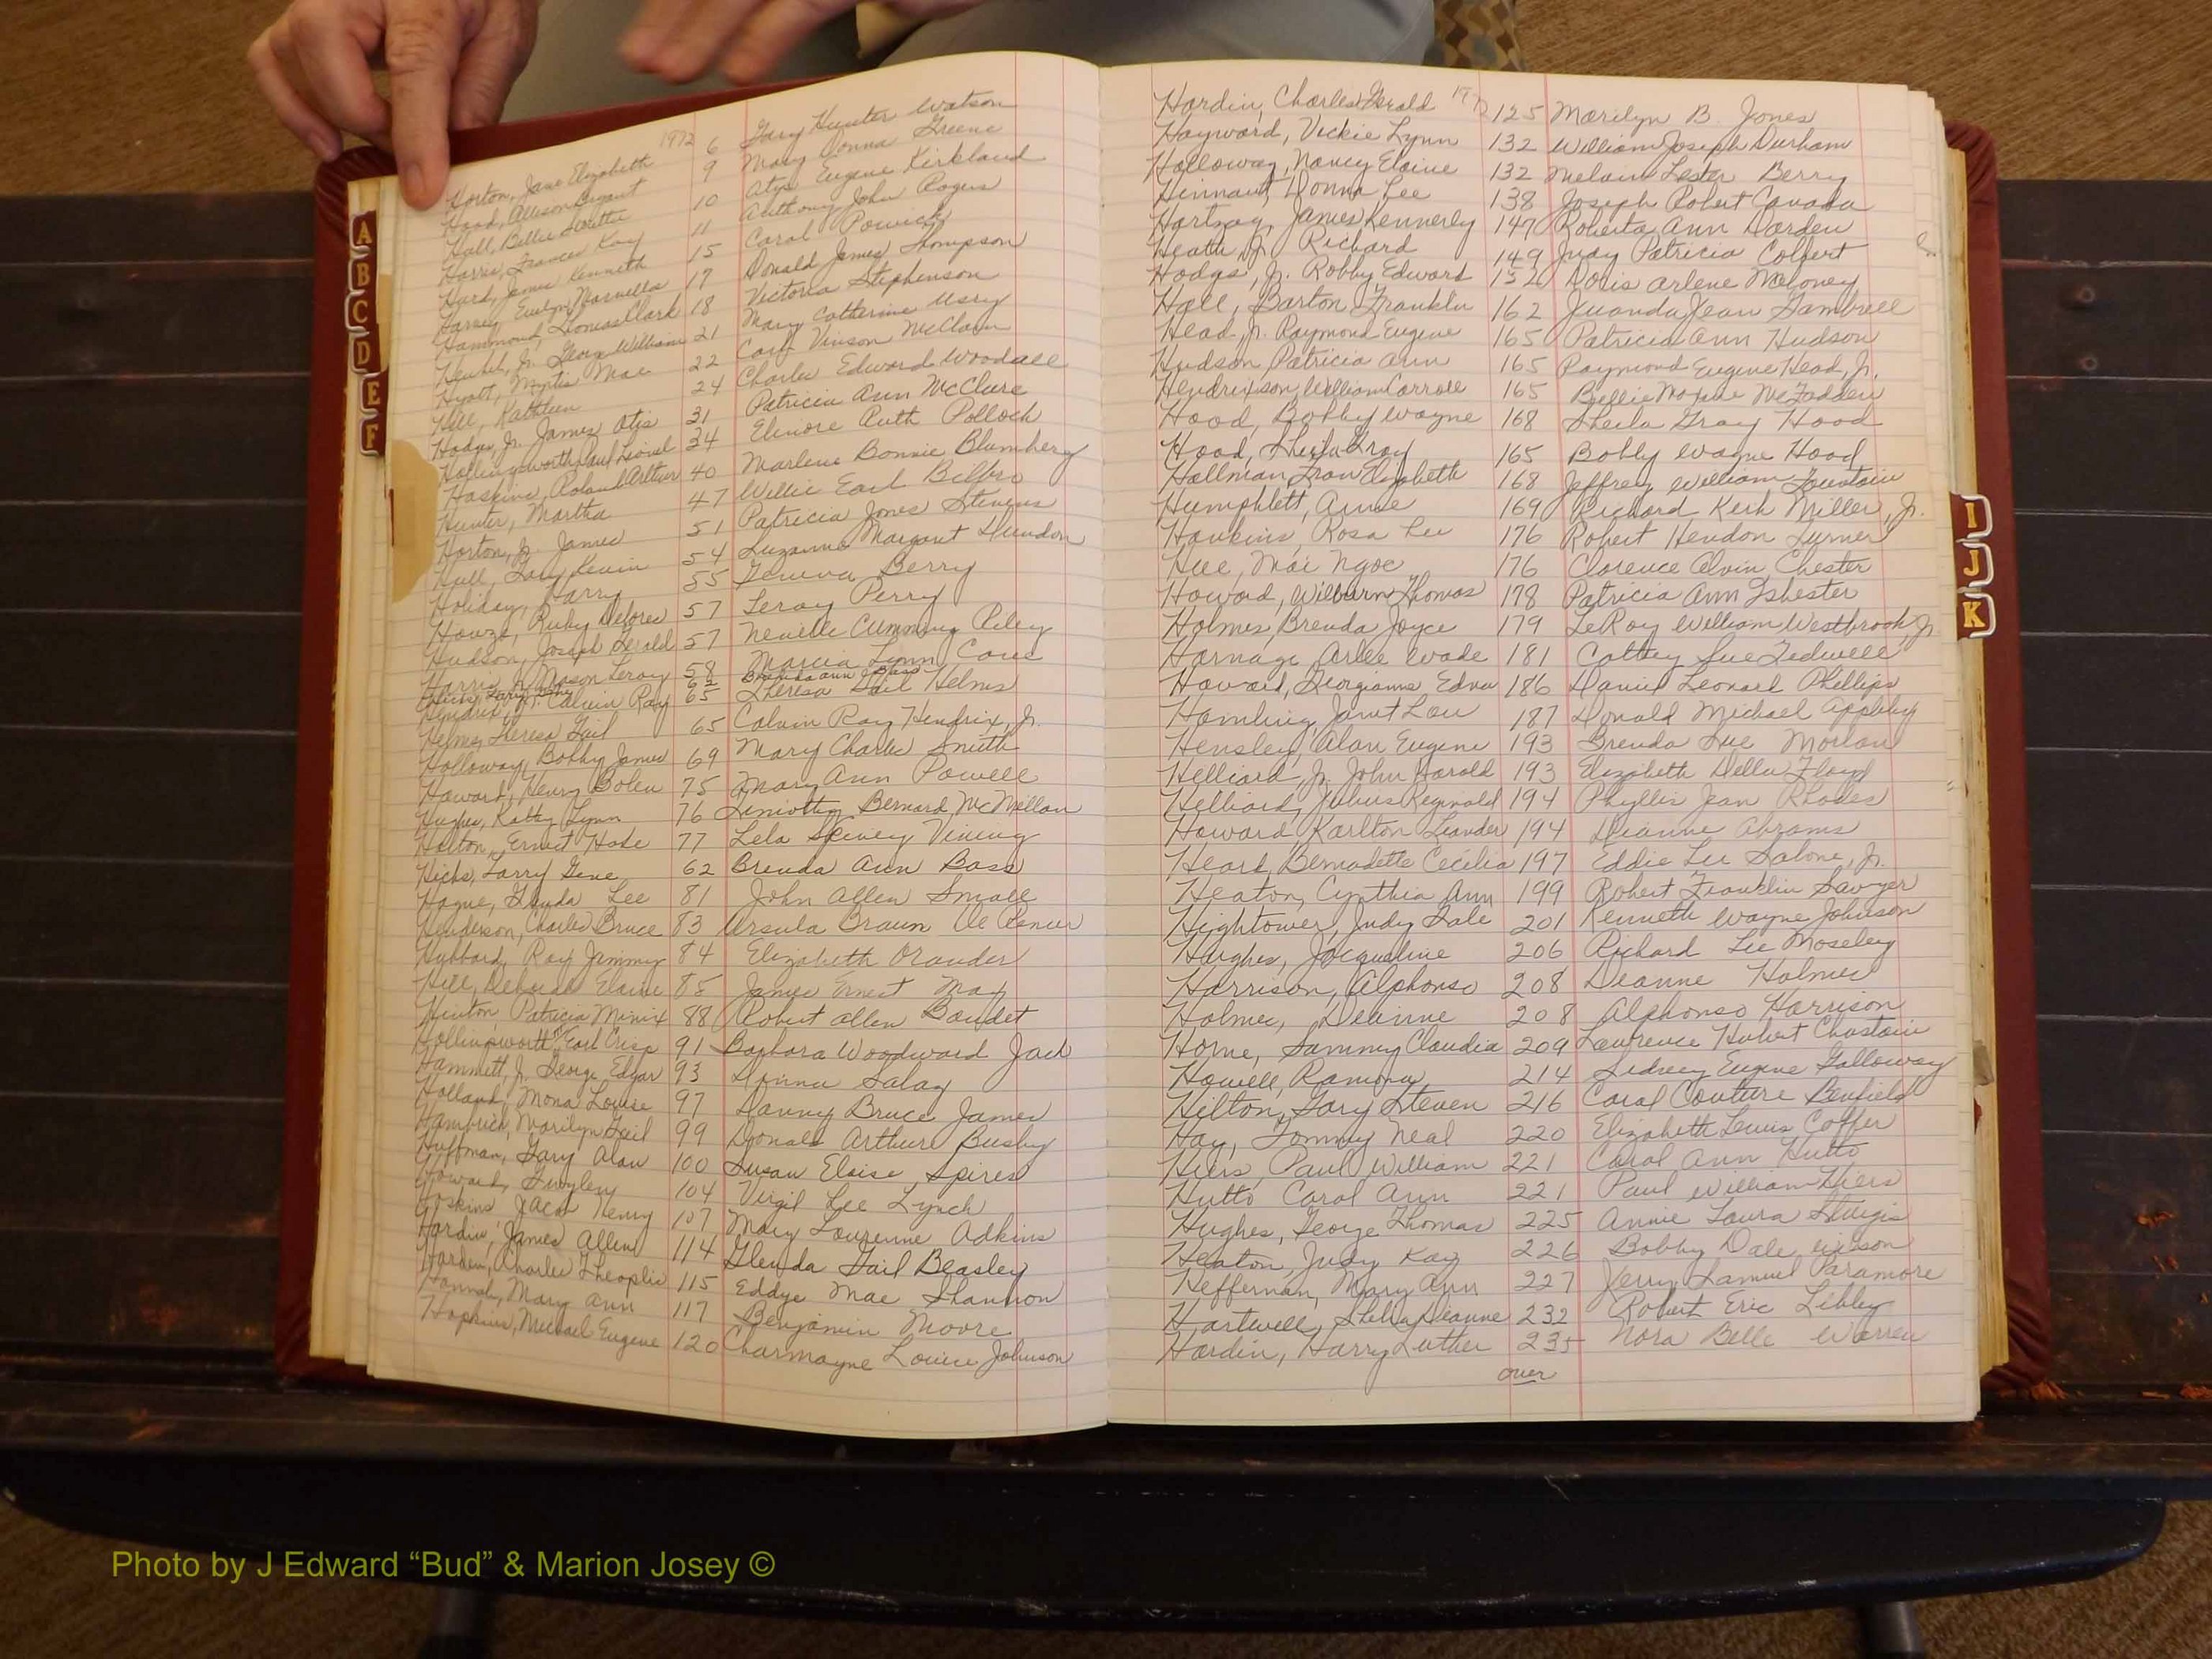 1972
Horton, Jane Elizabeth 6 Gary Hunter Watson
Hood, Allison Bryant 9 Mary Donna Greene
Hall, Billie 10 Eugene Kirkland
Harris, Frances Kay 11 Anthony John Rogers
Hurd, James Kenneth 15 Carol
Harvey, Evelyn 17 Donald James Thompson
Hammond, Thomas Clark 18 Victoria Stephenson
Jr. George William 21 Mary Catherine Usry
Hyatt, Myrtis Mae 22 Carl Vinson McClain
Hill, Kathleen 24 Charles Edward Woodall
Hodge, Jr. James Otis 31 Patricia Ann McClure
Hollingsworth, Paul 34 Elinore Ruth Pollock
Haskins, Roland Arthur 40 Marlene Bonnie Blumberg
Hunter, Martha 47 Willie Earl
Horton, Jr. James 51 Patricia Jones Stevens
Hull, Gary Kevin 54 Suzanne Margaret Herndon
Holiday, Harry 55 Geneva Berry
Howze, Ruby Delores 57 Leroy Perry
Hudson, Joseph Gerald 57 Cumming Riley
Harris, Jr. Mason Leroy 58 Marcia Lynn
Hicks, Larry Gene 62 Brenda Ann Bass
Hendrix, Jr. Calvin Ray 65 Theresa Gail Helms
Helms, Theresa Gail 65 Calvin Ray Hendrix, Jr.
Holloway, Bobby James 69 Mary Charles Smith
Howard, Henry Bolen 75 Mary Ann Powell
Hughes, Kathy Lynn 76 Timothy Bernard McMillan
Holton, Ernest 77 Lela Spivey Vining
Hicks, Larry Gene 62 Brenda Ann Bass
Hogue, Lee 81 John Allen Small
Henderson, Charles Bruce 83 Ursula Braun
Hubbard, Roy Jimmy 84 Elizabeth
Hill, Deborah Elaine 85 James Ernest May
Hinton, Patricia Minix 88 Robert Allen Baudet
Hollingsworth, Earl Crisp 91 Barbara Woodward
Hammett, Jr. George Edgar 93 Donna
Holland, Mona Louise 97 Danny Bruce James
Hambrick, Marilyn Gail 99 Donald Arthur Busby
Huffman, Gary Alan 100 Susan Elaise Spires
Howard, 104 Virgil Lee Lynch
Hoskins Jack Henry 107 Mary Adkins
Hardin, James Allen 114 Glenda Gail Beasley
Harden, Charles 115 Eddye Mae Shannon
Hannah, Mary Ann 117 Benjamin Moore
Hopkins, Michael Eugene 120 Charmayne Louise Johnson
Hardin, Charles Gerald 1972 125 Marilyn B. Jones
Hayward, Vickie Lynn 132 William Joseph Durham
Holloway, Nancy Elaine 132 Melvin Lester Berry
Hinnant, Donna Lee 138 Joseph Robert Canada
Hartzog, James Kennerly 147 Roberta Ann Darden
Heath, Jr. Richard 149 Judy Patricia Colbert
Hodges, Jr. Robby Edward 152 Doris Arlene Meloney
Hall, Barton Franklin 162 Juanda Jean Gambrell
Head, Jr. Raymond Eugene 165 Patricia Ann Hudson
Hudson Patricia Ann 165 Raymond Eugene Head, Jr.
Hendrixson, William Carroll 165 Billie Maxine McFadden
Hood, Bobby Wayne 168 Sheila Gray Hood
Hood, Sheila Gray 165 Bobby Wayne Hood
Hallman, Fran Elizabeth 168 Jeffrey William Fountain
Humphlett, Annie 169 Richard Kerk Miller, Jr.
Hawkins, Rosa Lee 176 Robert Hendon Turner
Hue, Mai Ngoc 176 Clarence Alvin Chester
Howard, Wilburn Thomas 178 Patricia Ann Ishester
Holmes, Brenda Joyce 179 LeRoy William Westbrook Jr.
Harnage, Arlee Wade 181 Cathey Sue Tidwell
Howard, Georgianna Edna 186 Daniel Leonard Phillips
Hambrig, Janet Lou 187 Donald Michael Appleby
Hensley, Alan Eugene 193 Brenda Sue Morlan
Helliard, Jr. John Harold 193 Elizabeth Della Floyd
Helliard, Julius Reginald 194 Phyllis Jean Rhodes
Howard Karlton Leander 194 Dianne Abrams
Heard, Bernadette Cecilia 197 Eddie Lee Sabone, Jr.
Heaton, Cynthia Ann 199 Robert Franklin Sawyer
Hightower, Judy Gale 201 Kenneth Wayne Johnson
Hughes, Jacqueline 206 Richard Lee Moseley
Harrison, Alphonso 208 Deanne Holmes
Holmes, Deanne 208 Alphonso Harrison
Horne, Sammy Claudia 209 Lawrence Hubert Chastain
Howell, Ramona 214 Sidney Eugene Galloway
Hilton, Gary Steven 216 Carol Couture Benfield
Hay, Tommy Neal 220 Elizabeth Lewis Coffer
Hiers, Paul William 221 Carol Ann Hutto
Hutto Carol Ann 221 Paul William Hiers
Hughes, George Thomas 225 Annie Laura Sturgis
Heaton, Judy Kay 226 Bobby Dale
Heffernan, Mary Ann 227 Jerry Samuel Paramore
Hartwell, Shelly Deanne 232 Robert Eric Libby
Hardin, Harry Luther 235 Nora Belle Warren
over
A
B
C
D
E
F
I
J
K
Photo by J Edward “Bud” & Marion Josey ©